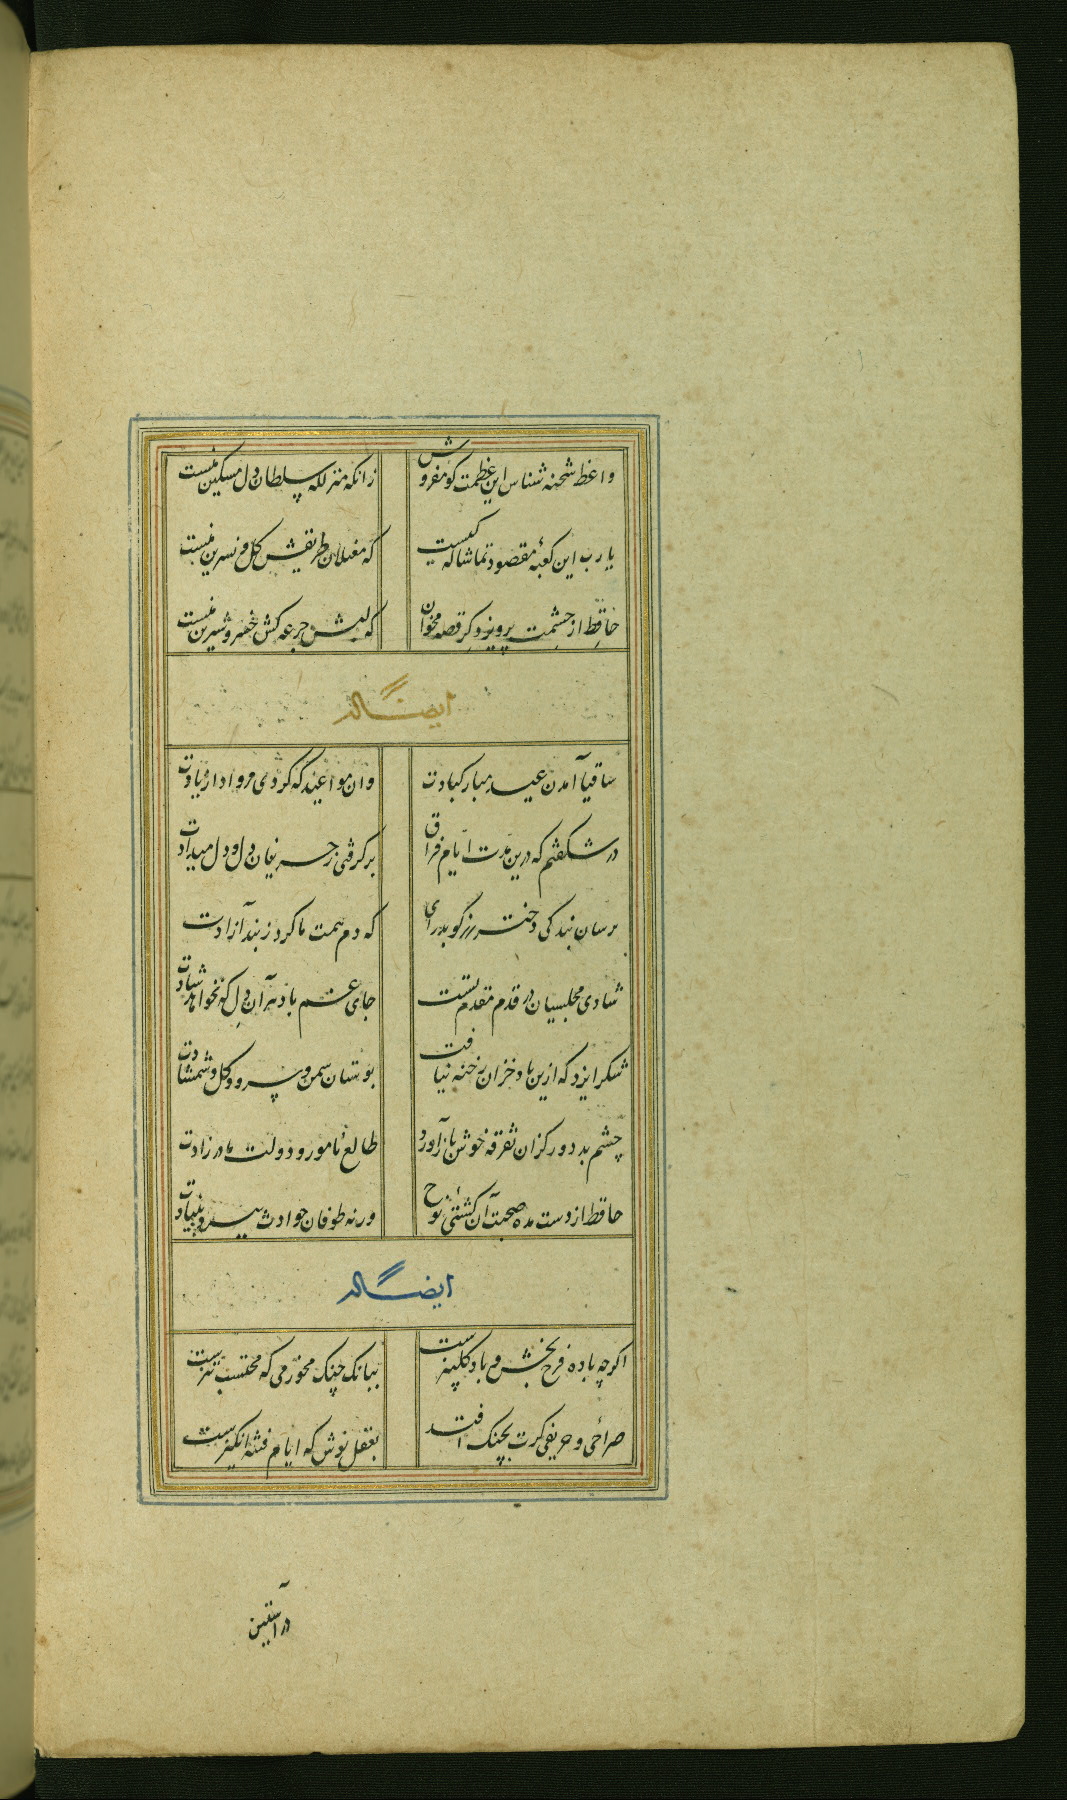 واعظ شحنه شناس این عظمت کو مفروش زانکه منزلگه سلطان دل مسکین منست
یا رب این کعبهٔ مقصود تماشاگه کیست که مغیلان طریقش گل و نسرین منست
حافظ از حشمت پرویز دگر قصه مخوان که لبش جرعه کش خسرو شیرین منست
ایضاً له
ساقیا آمدن عید مبارکبادت وان مواعید که کردی مرواد از یادت
در شگفتم که درین مدت ایام فراق برگرفتی ز حریفان دل و دل میدادت
برسان بندگی دختر رز گو بدر آی که دم همت ما کرد ز بند آزادت
شادی مجلسیان در قدم مقدم تست جای غم باد هر آن دل که نخواهد شادت
شکر ایزد که ازین باد خزان رخنه نیافت بوستان سمن و سرو و گل و شمشادت
چشم بد دور کزان تفرقه خوش باز آورد طالع نامور و دولت مادر زادت
حافظ از دست مده صحبت آن کشتی نوح ورنه طوفان حوادث ببرد بنیادت
ایضاً له
اگر چه باده فرح بخش و باد گلبیزست ببانگ چنگ مخور می که محتسب تیزست
صراحی و حریفی گرت بچنگ افتد بعقل نوش که ایام فتنه انگیزست
در آستین